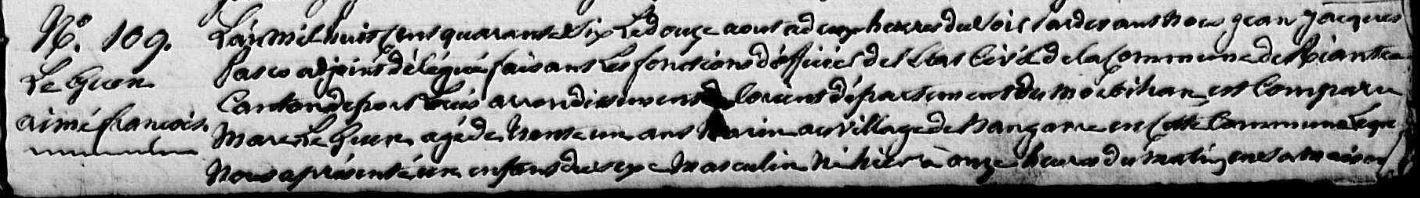 N.° 109.
Le Guen
aimé françois
L'an mil huit cent quarante six Le douze aout a deux heures du soir pardevant nous jean jacques
Pasco adjoint délégué faisant les fonctions d'officier de l'etat Civil de la Commune de Riantec
Canton de port Louis arrondissement de lorient département du morbihan, est Comparu
Marc Le Guen agé de trente un ans Marin au village de en Cette Commune Lequel
Nous a présenté un enfant du sexe Masculin Né hier à onze heures du matin en sa maison